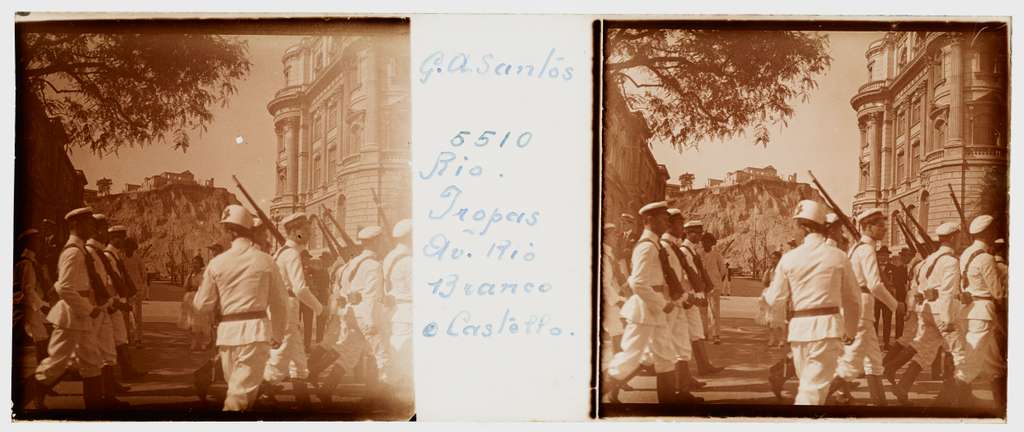 G. A Santos
5510
Rio.
Tropas
Av. Rio
Branco
e Castello.